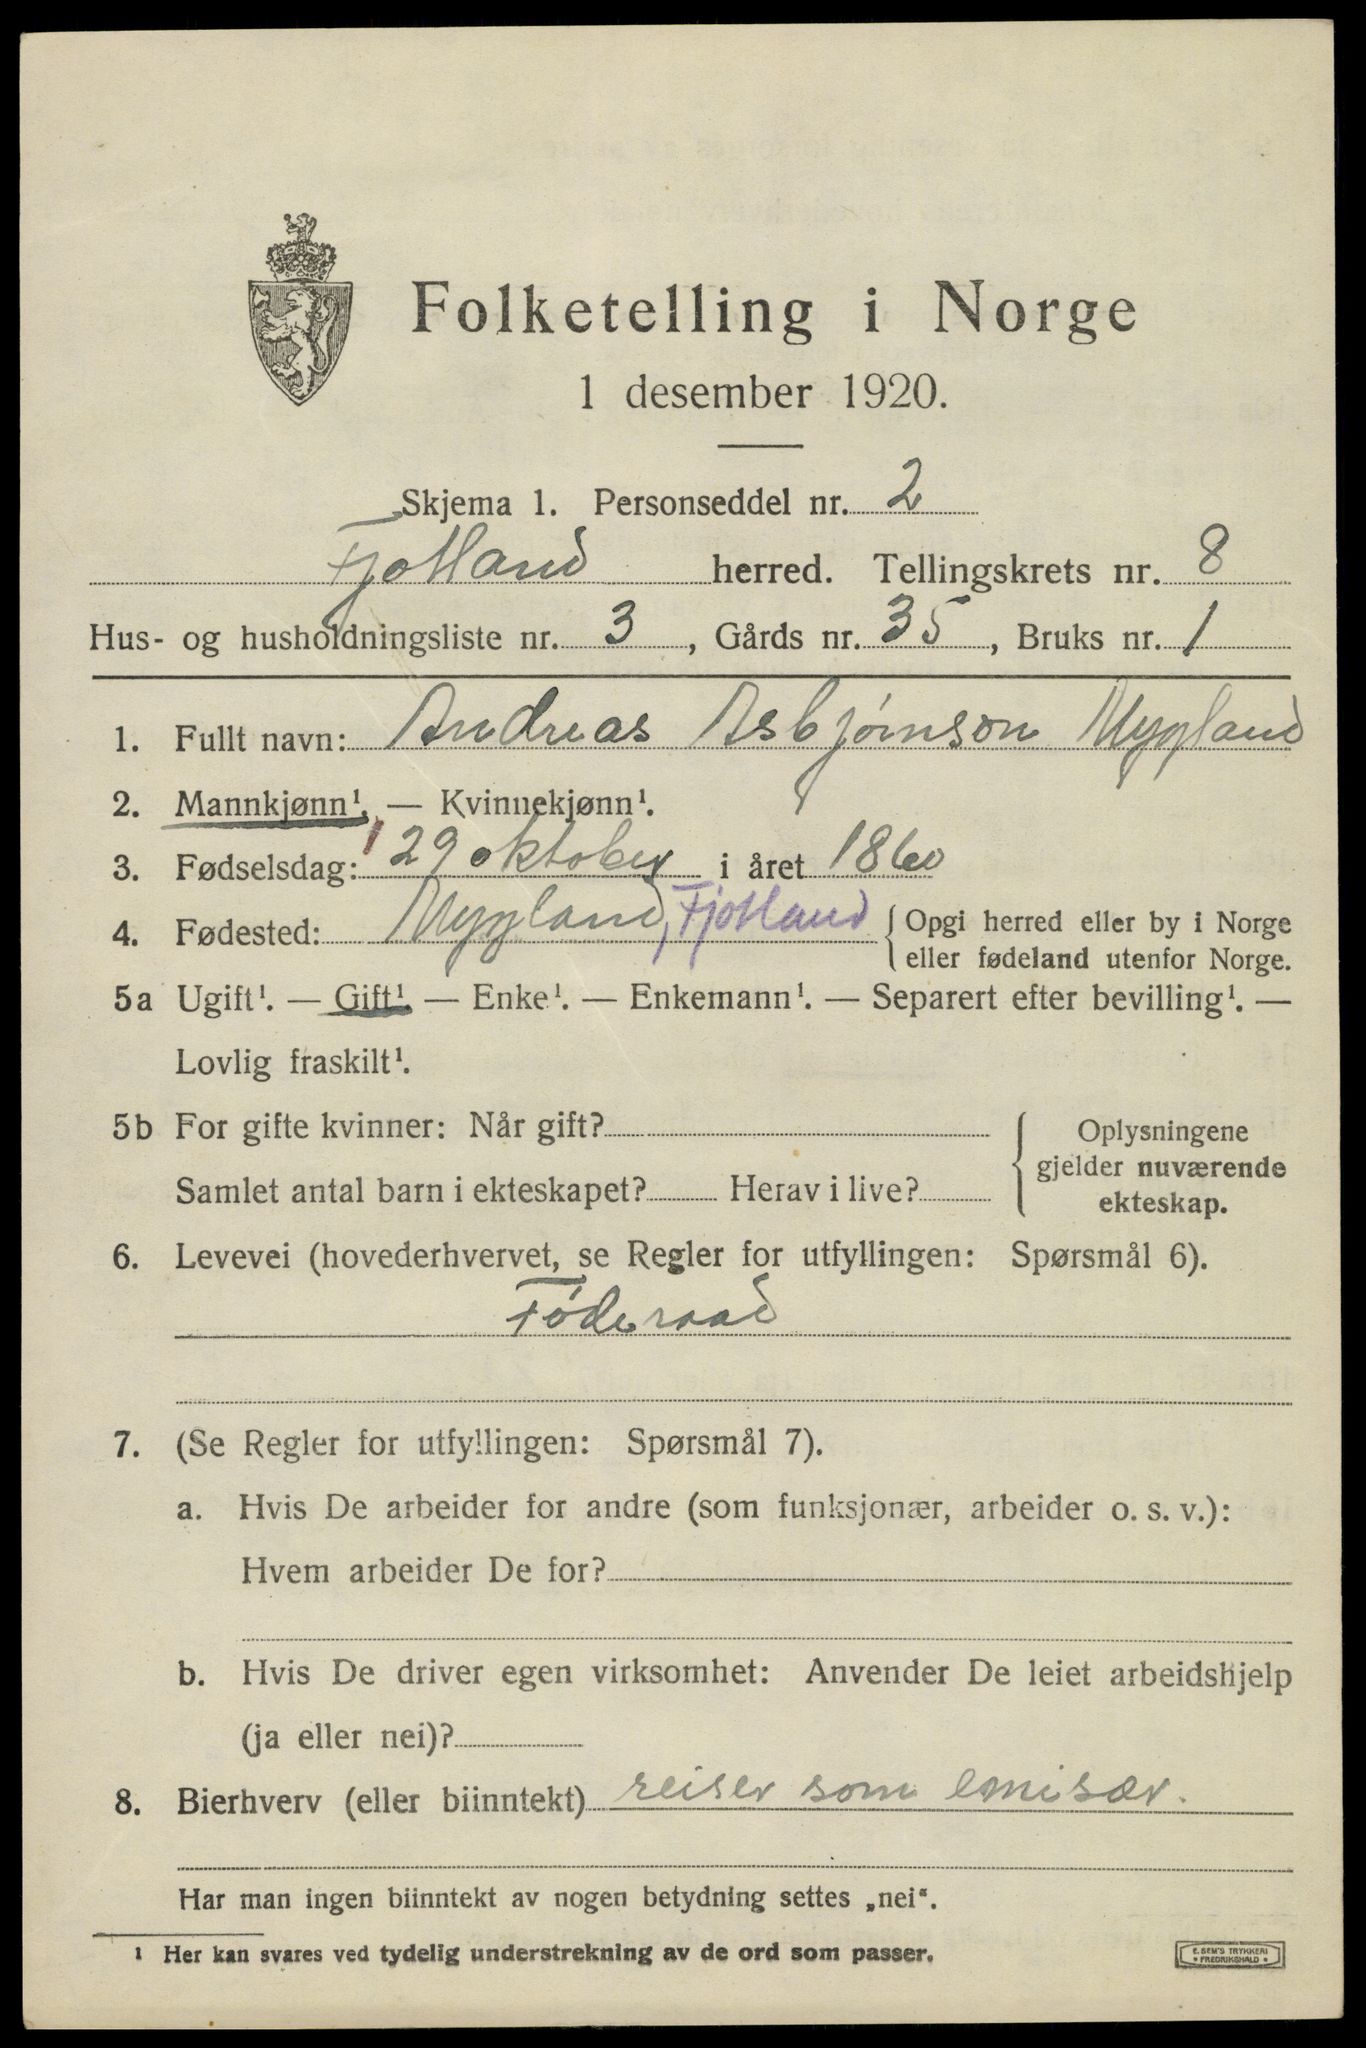 Folketelling i Norge
1 desember 1920.
Skjema 1. Personseddel nr. 2
Fjotland herred. Tellingskrets nr. 8
Hus- og husholdningsliste nr. 3, Gårds nr. 35, Bruks nr. 1
1. Fullt navn: Andreas Asbjørnson Mygland
2. Mannkjønn¹. — Kvinnekjønn¹.
3. Fødselsdag: 29 oktober i året 1860
4. Fødested: Mygland, Fjotland { Opgi herred eller by i Norge
eller fødeland utenfor Norge.
5a Ugift¹. — Gift¹ — Enke¹. — Enkemann¹. — Separert efter bevilling¹. —
Lovlig fraskilt¹.
5b For gifte kvinner: Når gift?
Samlet antal barn i ekteskapet? Herav i live?
Oplysningene
gjelder nuværende
ekteskap.
6. Levevei (hovederhvervet, se Regler for utfyllingen: Spørsmål 6).
Föderaad
7. (Se Regler for utfyllingen: Spørsmål 7).
a. Hvis De arbeider for andre (som funksjonær, arbeider o. s. v.):
Hvem arbeider De for?
b. Hvis De driver egen virksomhet: Anvender De leiet arbeidshjelp
(ja eller nei)?
8. Bierhverv (eller biinntekt) reiser som emisær.
Har man ingen biinntekt av nogen betydning settes „nei“.
¹ Her kan svares ved tydelig understrekning av de ord som passer.
E. SEM'S TRYKKERI
FREDRIKSHALD